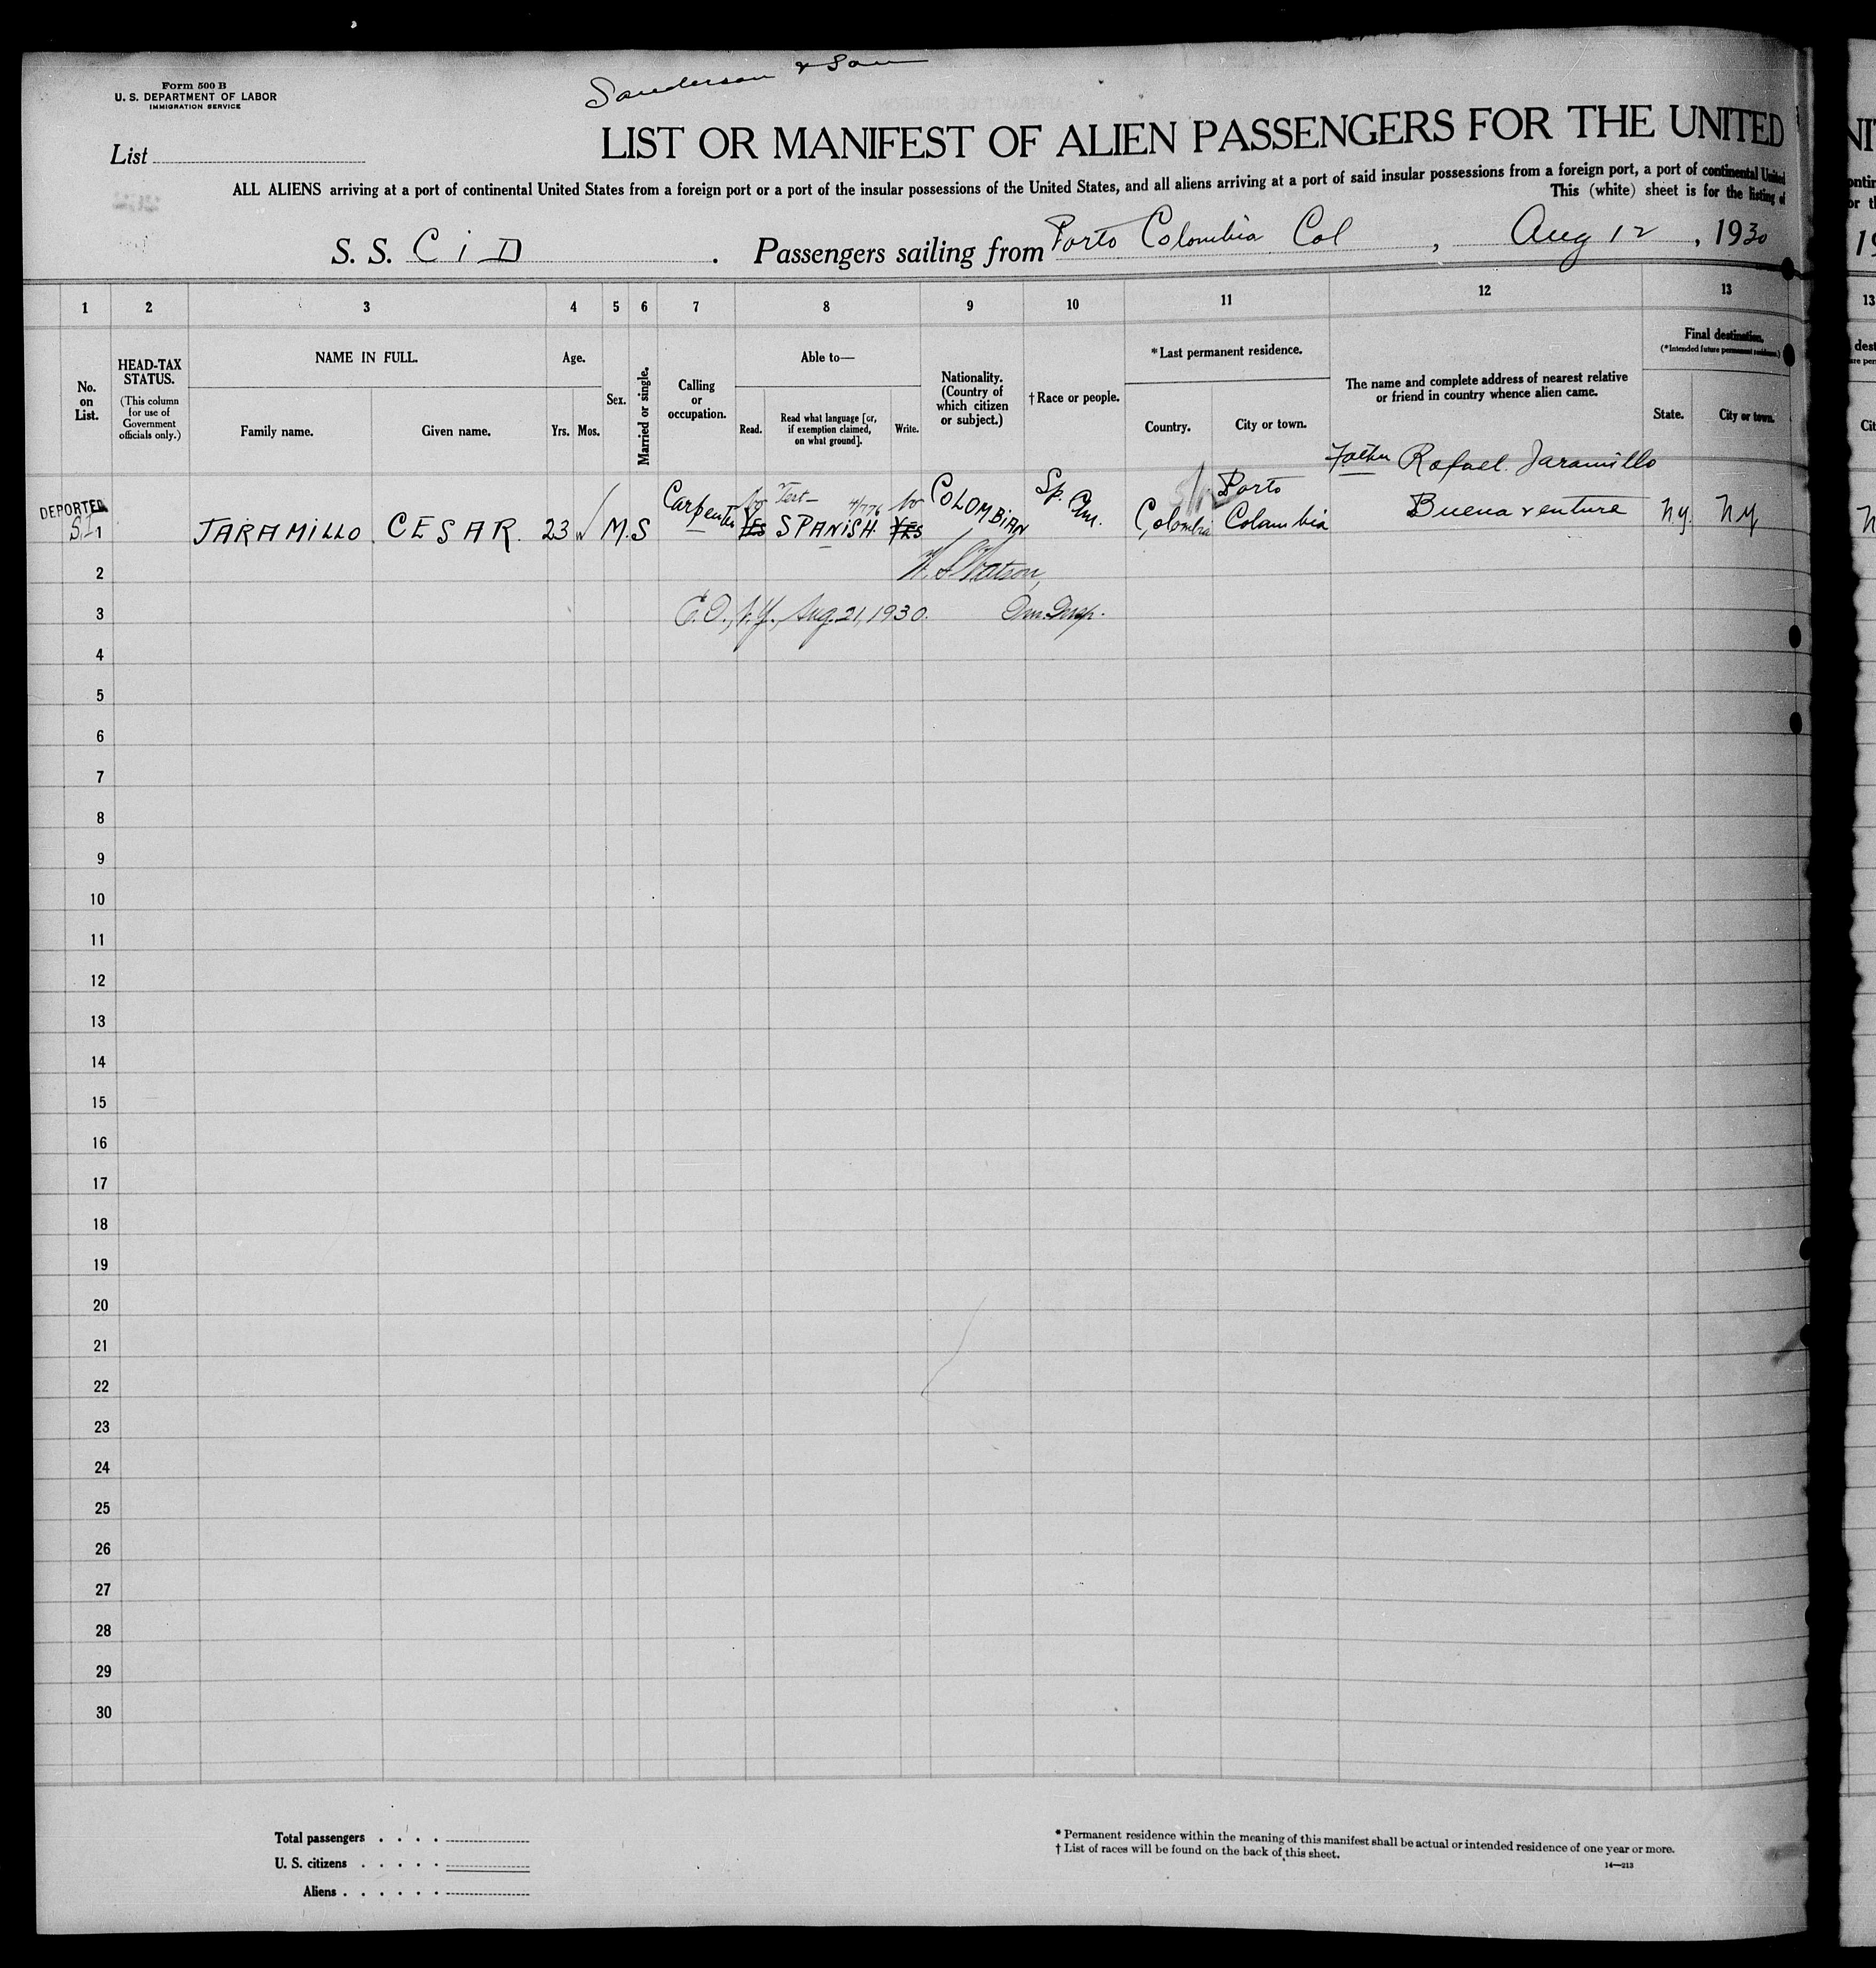 Sanderson & Son
Form 500 B
U. S. DEPARTMENT OF LABOR
IMMIGRATION SERVICE
List
LIST OR MANIFEST OF ALIEN PASSENGERS FOR THE UNITED
ALL ALIENS arriving at a port of continental United States from a foreign port or a port of the insular possessions of the United States, and all aliens arriving at a port of said insular possessions from a foreign port, a port of continental United
This (white) sheet is for the listing of
S. S. CiD . Passengers sailing from Porto Colombia Col , Aug 12 , 1930
1 2 3 4 5 6 7 8 9 10 11 12 13
No. on List.
HEAD-TAX STATUS.
(This column for use of Government officials only.)
NAME IN FULL.
Family name. Given name.
Age.
Yrs. Mos.
Sex.
Married or single.
Calling or occupation.
Able to—
Read. Read what language [or, if exemption claimed, on what ground]. Write.
Nationality. (Country of which citizen or subject.)
† Race or people.
* Last permanent residence.
Country. City or town.
The name and complete address of nearest relative or friend in country whence alien came.
Final destination.
(* Intended future permanent residence.)
State. City or town.
Father Rafael Jaramillo
DEPORTED
S.I. 1 JARAMILLO CESAR. 23 M. S Carpenter Yes Test SPANiSH. Yes COLOMBiAN Sp. Am. Colombia Porto Colombia Buenaventure N.Y. NY
2 Watson,
3 Aug. 21, 1930. Imm. Insp.
4
5
6
7
8
9
10
11
12
13
14
15
16
17
18
19
20
21
22
23
24
25
26
27
28
29
30
Total passengers . . . .
U. S. citizens . . . . .
Aliens . . . . . .
* Permanent residence within the meaning of this manifest shall be actual or intended residence of one year or more.
† List of races will be found on the back of this sheet.
14—213